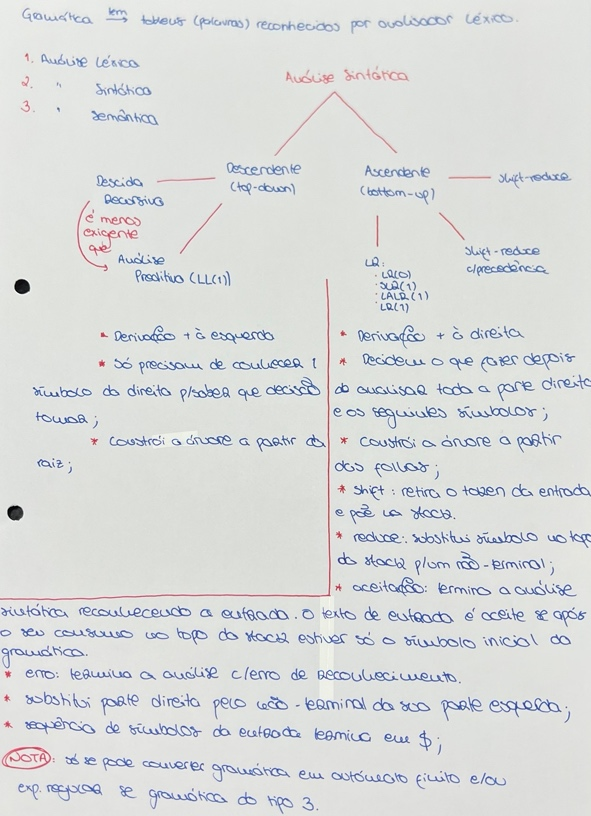 Gramática tem → tokens (palavras) reconhecidos por analisador léxico.
1. Análise Léxica
2. " Sintática
3. " Semântica
Análise Sintática
Descendente
(top-down)
Ascendente
(bottom-up)
shift-reduce
Descida
Recursiva
é menos
exigente
que
Análise
Preditiva (LL(1))
LR:
· LR(0)
· SLR(1)
· LALR(1)
· LR(1)
shift-reduce
c/precedência
* Derivação + à esquerda
* Só precisam de conhecer 1
símbolo da direita p/saber que decisão
tomar;
* Constrói a árvore a partir da
raiz;
* Derivação + à direita
* Decidem o que fazer depois
de analisar toda a parte direita
e os seguintes símbolos;
* Constrói a árvore a partir
das folhas;
* shift: retira o token da entrada
e põe na stack.
* reduce: substitui símbolo no topo
da stack p/um não-terminal;
* aceitação: termina a análise
sintática reconhecendo a entrada. O texto de entrada é aceite se após
o seu consumo no topo da stack estiver só o símbolo inicial da
gramática.
* erro: termina a análise c/erro de reconhecimento.
* substitui parte direita pelo não-terminal da sua parte esquerda;
* sequência de símbolos da entrada termina em $;
NOTA: só se pode converter gramática em autómato finito e/ou
exp. regular se gramática do tipo 3.